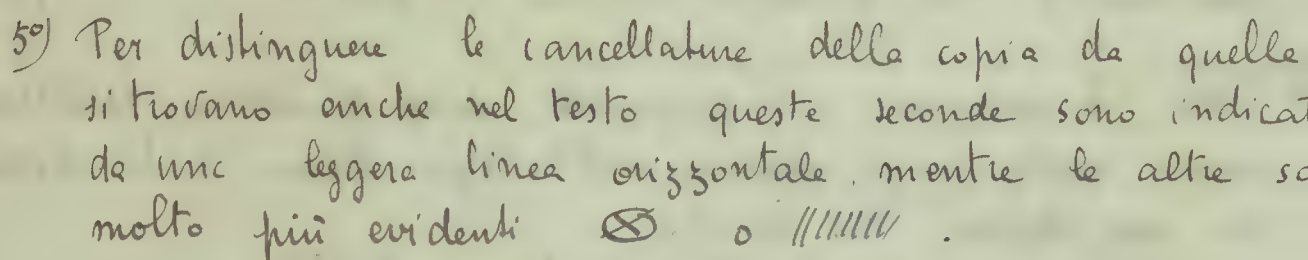 5°) Per distinguere le cancellature della copia da quelle
si trovano anche nel testo queste seconde sono indicat
da una leggera linea orizzontale, mentre le altre so
molto più evidenti o .